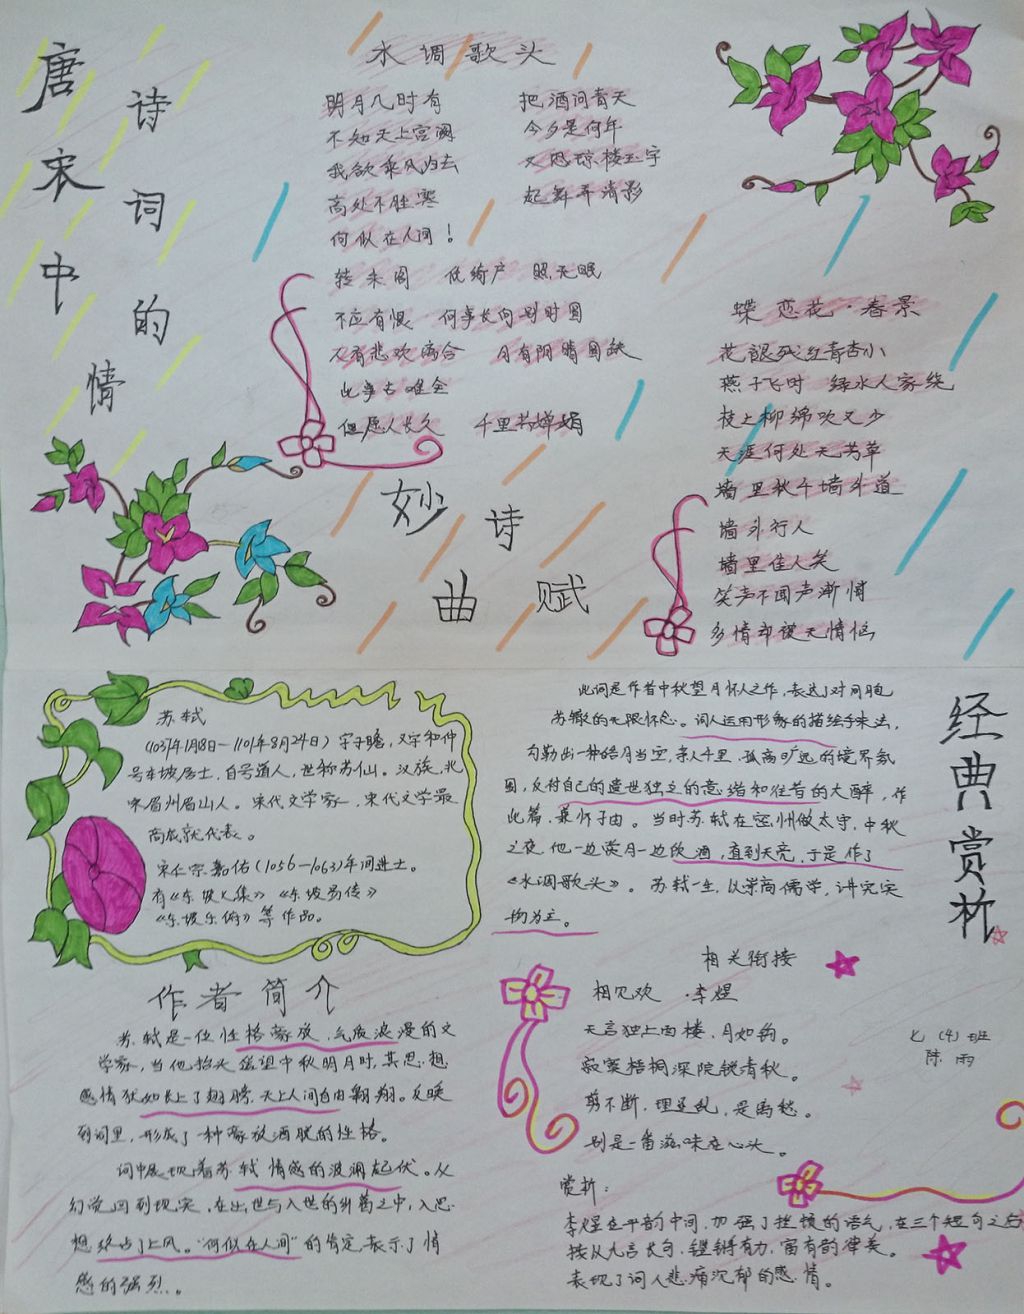 唐宋中
诗词的
情
水调歌头
明月几时有 把酒问青天
不知天上宫阙 今夕是何年
我欲乘风归去 又恐琼楼玉宇
高处不胜寒 起舞弄清影
何似在人间！
转朱阁 低绮户 照无眠
不应有恨 何事长向别时圆
人有悲欢离合 月有阴晴圆缺
此事古难全
但愿人长久 千里共婵娟
妙诗
曲赋
蝶恋花·春景
花褪残红青杏小
燕子飞时 绿水人家绕
枝上柳绵吹又少
天涯何处无芳草
墙里秋千墙外道
墙外行人
墙里佳人笑
笑声不闻声渐悄
多情却被无情恼
苏轼
(1037年1月8日—1101年8月24日) 字子瞻，又字和仲
号东坡居士，自号道人，世称苏仙。汉族，北
宋眉州眉山人。宋代文学家，宋代文学最
高成就代表。
宋仁宗嘉佑(1056—1063)年间进士。
有《东坡七集》《东坡易传》
《东坡乐府》等作品。
作者简介
苏轼是一位性格豪放、气质浪漫的文
学家，当他抬头遥望中秋明月时，其思想
感情犹如长上了翅膀，天上人间自由翱翔。反映
到词里，形成了一种豪放洒脱的性格。
词中展现着苏轼情感的波澜起伏。从
幻觉回到现实，在出世与入世的纠葛之中，入思
想终占了上风。“何似在人间”的肯定，表示了情
感的强烈。
此词是作者中秋望月怀人之作，表达了对同胞
苏辙的无限怀念。词人运用形象的描绘手法，
勾勒出一种皓月当空，亲人千里，孤高旷远的境界氛
围，反衬自己的遗世独立的意绪和往昔的大醉，作
此篇，兼怀子由。当时苏轼在密州做太守，中秋
之夜他一边赏月一边饮酒，直到天亮，于是作了
《水调歌头》。苏轼一生，以崇高儒学，讲究实
均为主。
经典赏析
相关衔接
相见欢 ·李煜
无言独上西楼，月如钩。
寂寞梧桐深院锁清秋。
剪不断，理还乱，是离愁。
别是一番滋味在心头。
七（4）班
陈雨
赏析：
李煜在平韵中间，加强了挫顿的语气，在三个短句之后
接从九言长句，铿锵有力，富有韵律美。
表现了词人悲痛沉郁的感情。